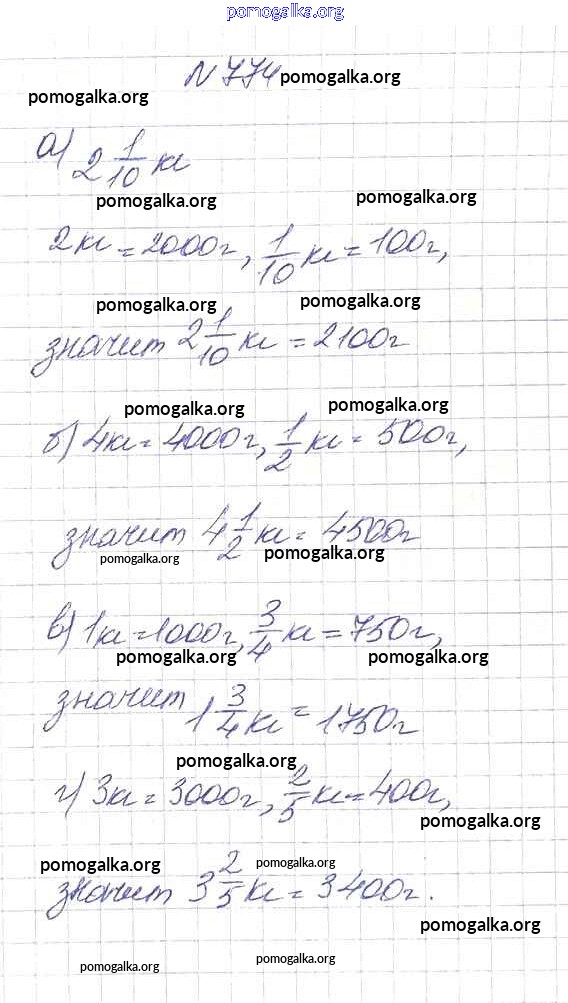 pomogalka.org
№774 pomogalka.org
pomogalka.org
а) 2 1/10 кг
pomogalka.org pomogalka.org
2кг = 2000г, 1/10 кг = 100г,
pomogalka.org pomogalka.org
значит 2 1/10 кг = 2100г
pomogalka.org pomogalka.org
б) 4кг = 4000г, 1/2 кг = 500г,
значит 4 1/2 кг = 4500г
pomogalka.org pomogalka.org
в) 1кг = 1000г, 3/4 кг = 750г,
pomogalka.org pomogalka.org
значит 1 3/4 кг = 1750г
pomogalka.org
г) 3кг = 3000г, 2/5 кг = 400г,
pomogalka.org
pomogalka.org pomogalka.org
значит 3 2/5 кг = 3400г.
pomogalka.org
pomogalka.org pomogalka.org